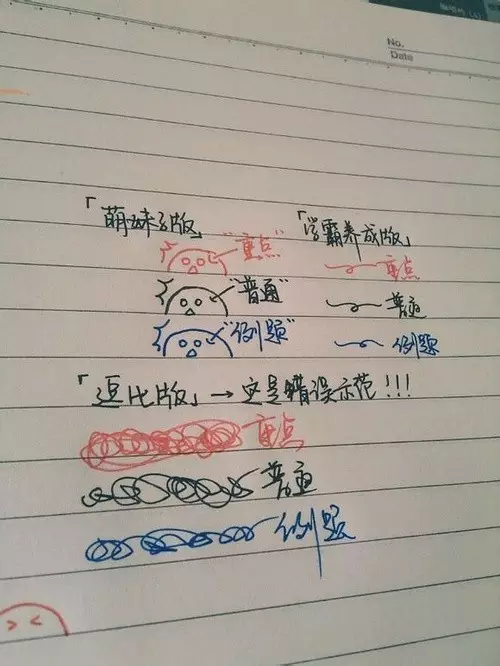 No.
Date
「萌妹子版」 「学霸养成版」
"重点" 重点
"普通" 普通
"例题" 例题
「逗比版」→这是错误示范!!!
重点
普通
例题